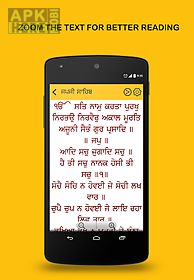 ZOOM THE TEXT FOR BETTER READING
APK
ਜਪੁਜੀ ਸਾਹਿਬ
ੴ ਸਤਿ ਨਾਮੁ ਕਰਤਾ ਪੁਰਖੁ
ਨਿਰਭਉ ਨਿਰਵੈਰੁ ਅਕਾਲ ਮੂਰਤਿ
ਅਜੂਨੀ ਸੈਭੰ ਗੁਰ ਪ੍ਰਸਾਦਿ ॥
॥ ਜਪੁ ॥
ਆਦਿ ਸਚੁ ਜੁਗਾਦਿ ਸਚੁ ॥
ਹੈ ਭੀ ਸਚੁ ਨਾਨਕ ਹੋਸੀ ਭੀ
ਸਚੁ ॥੧॥
ਸੋਚੈ ਸੋਚਿ ਨ ਹੋਵਈ ਜੇ ਸੋਚੀ ਲਖ
ਵਾਰ ॥
ਚੁਪੈ ਚੁਪ ਨ ਹੋਵਈ ਜੇ ਲਾਇ ਰਹਾ
ਲਿਵ ਤਾਰ ॥